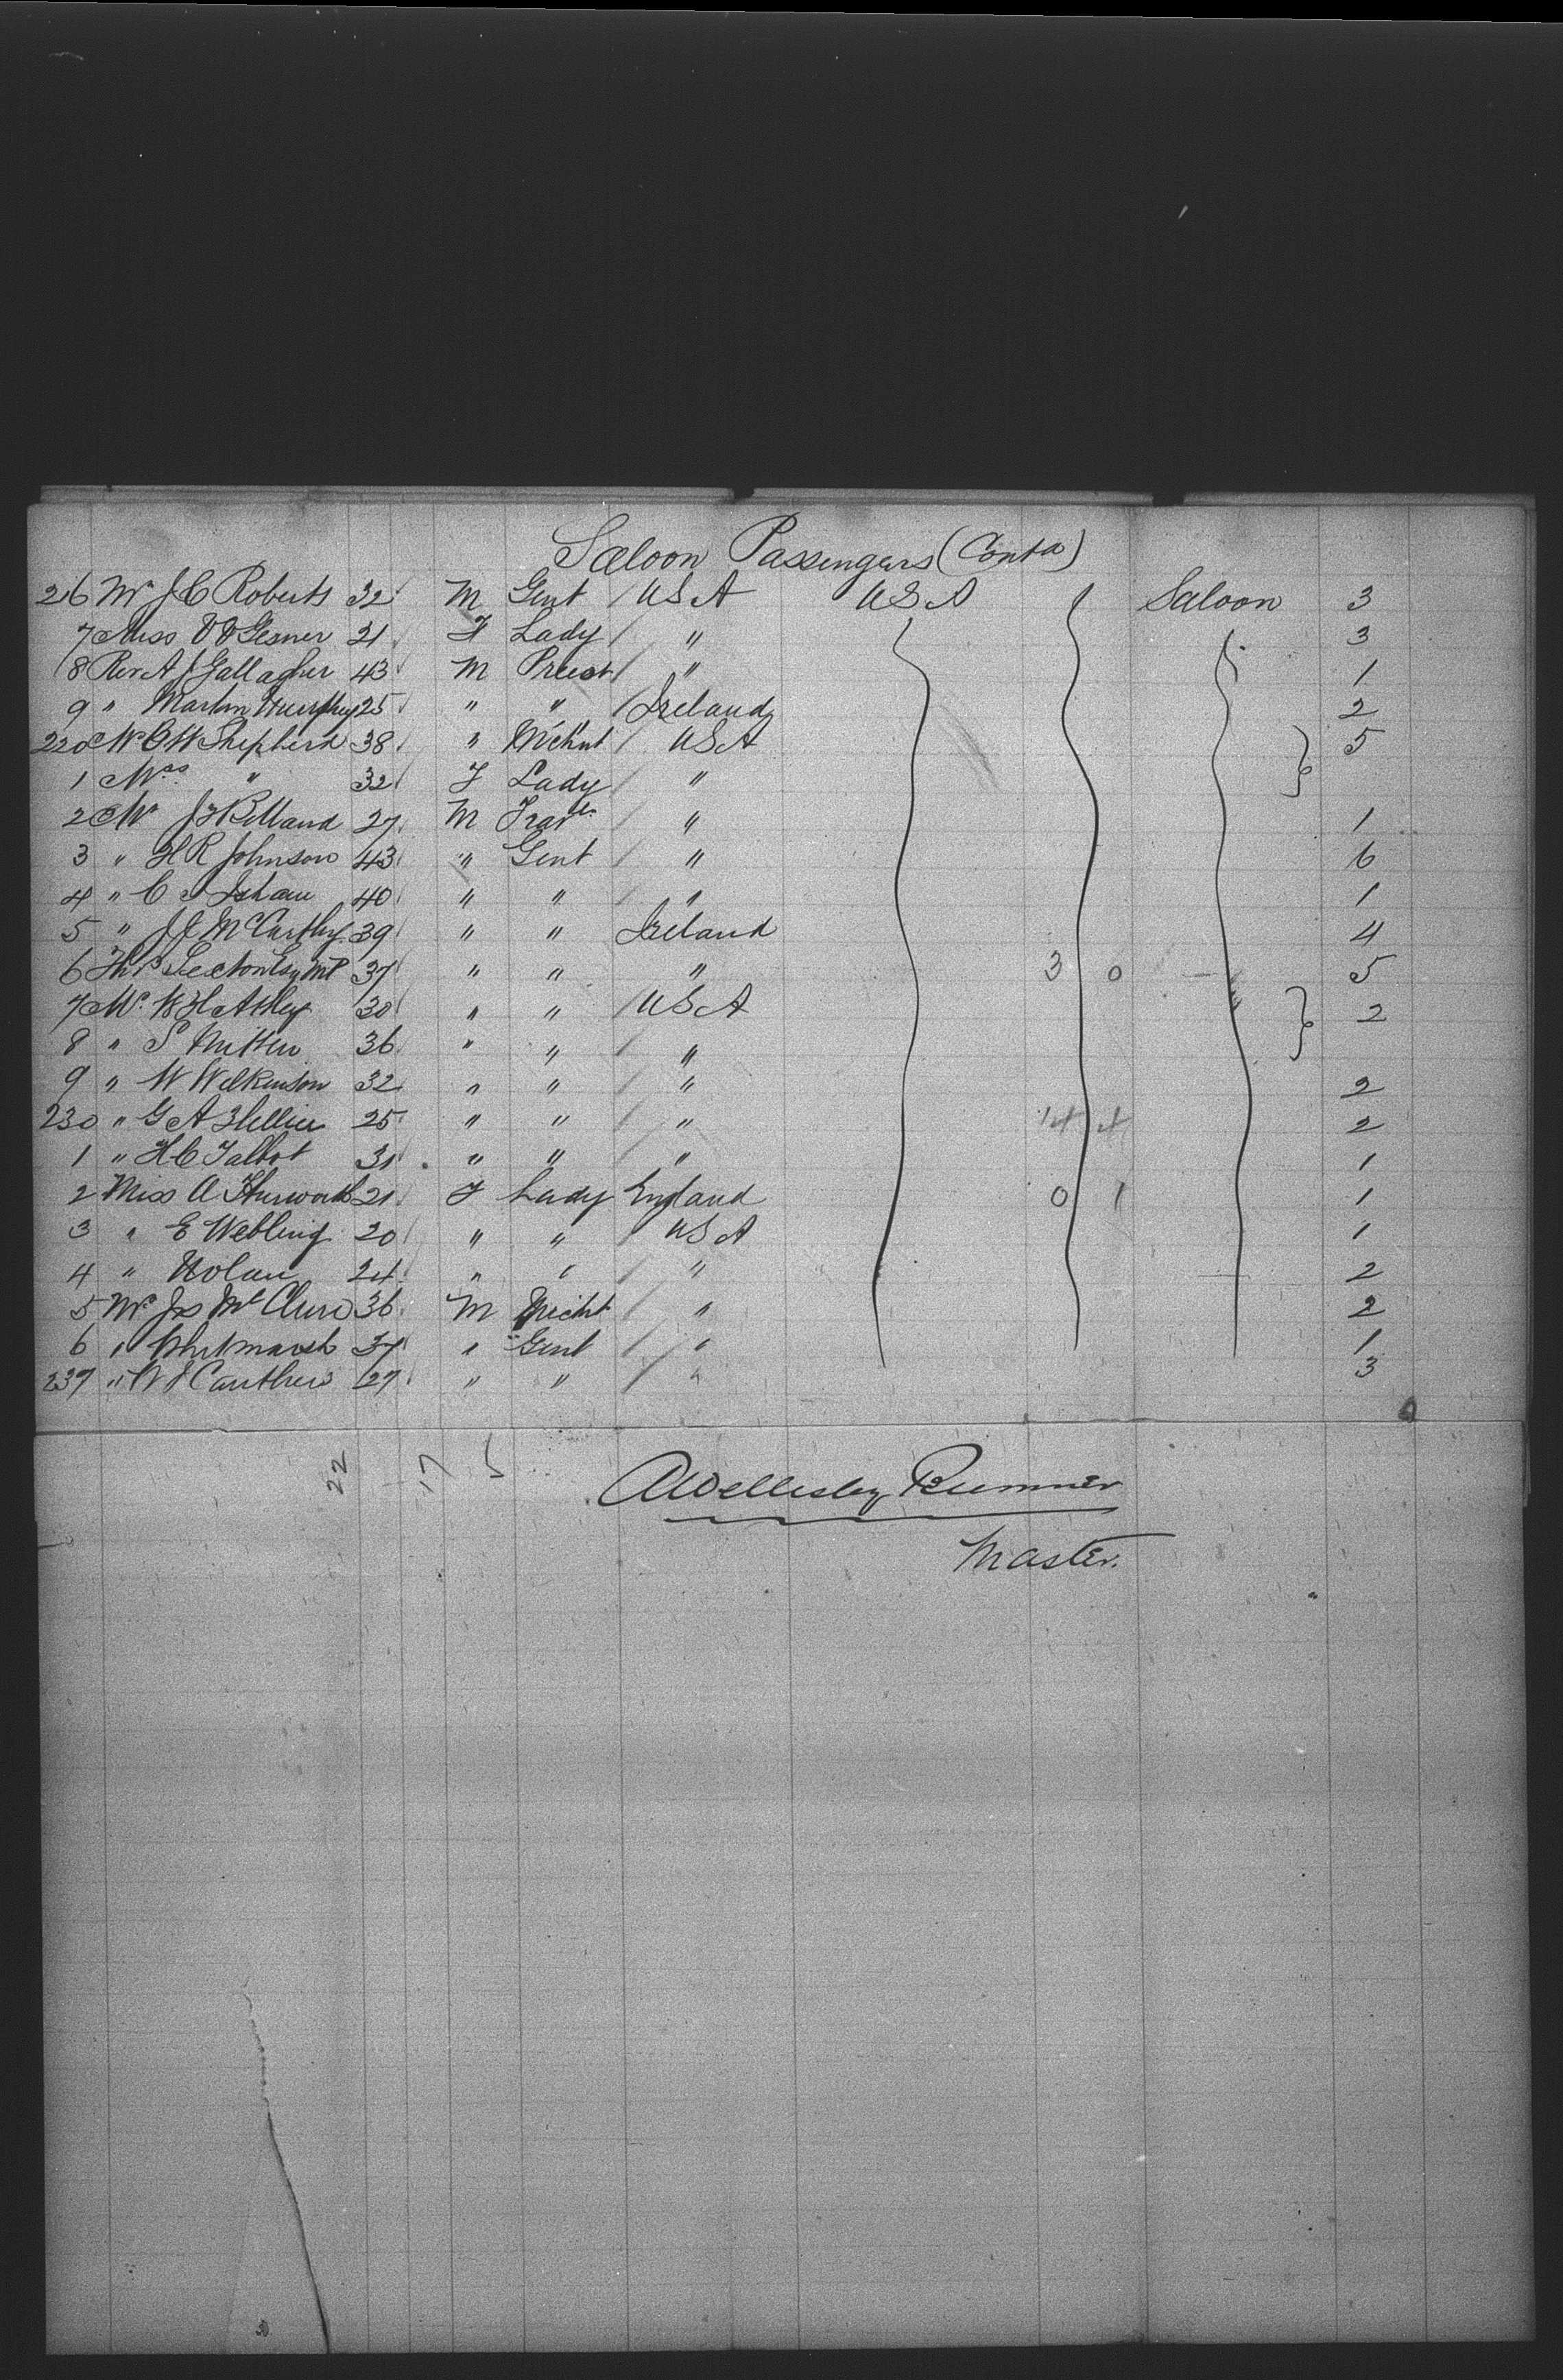 Saloon Passengers (Contd)
216 Mr J C Roberts 32 M Gent / USA USA Saloon 3
7 Miss Gesner 21 F Lady / " 3
8 Rev A J Gallagher 43 M Priest / " 1
9 " Martin Murphy 25 " " / Ireland 2
220 Mr Shepherd 38 " Mchnt / USA } 5
1 Mrs " 32 F Lady / "
2 Mr 27 M / " 1
3 " H R Johnson 43 " Gent / " 6
4 " C Isham 40 " " / " 1
5 " J J McCarthy 39 " " Ireland 4
6 Esq MP 37 " " " 3 0 5
7 Mr W H Astley 30 " " / USA } 2
8 " S 36 " " / "
9 " W Wilkinson 32 " " / " 2
230 " G A Hellier 25 " " / " 14 4 2
1 " H C Talbot 31 " " / " 1
2 Miss A 21 F Lady England 0 1 1
3 " E Webling 20 " " / USA 1
4 " Nolan 24 " " / " 2
5 Mr Jas McClure 36 M Mecht / " 2
6 " Whitmarsh 37 " Gent / " 1
237 " Cauthers 27 " " / " 3
22 17 5
Master.